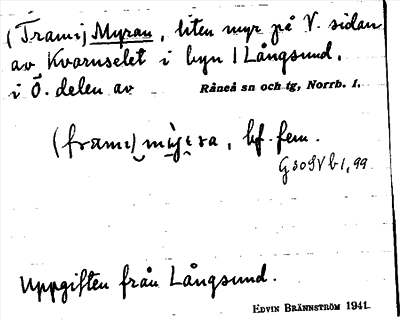 (Trami) Myran, liten myr på V. sidan
av Kvarnselet i byn Långsund,
i Ö. delen av Råneå sn och tg, Norrb. l.
bf. fem.
GSOSV b1, 99
Uppgiften från Långsund.
EDVIN BRÄNNSTRÖM 1941.